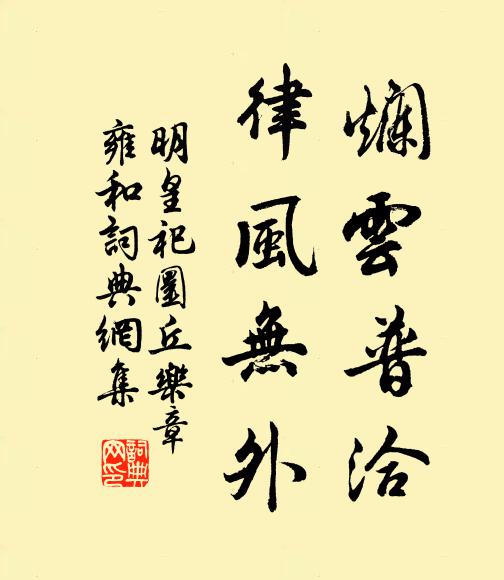 爛雲普洽
律風無外
明皇祀圜丘樂章
雍和詞典網集
詞典
网印